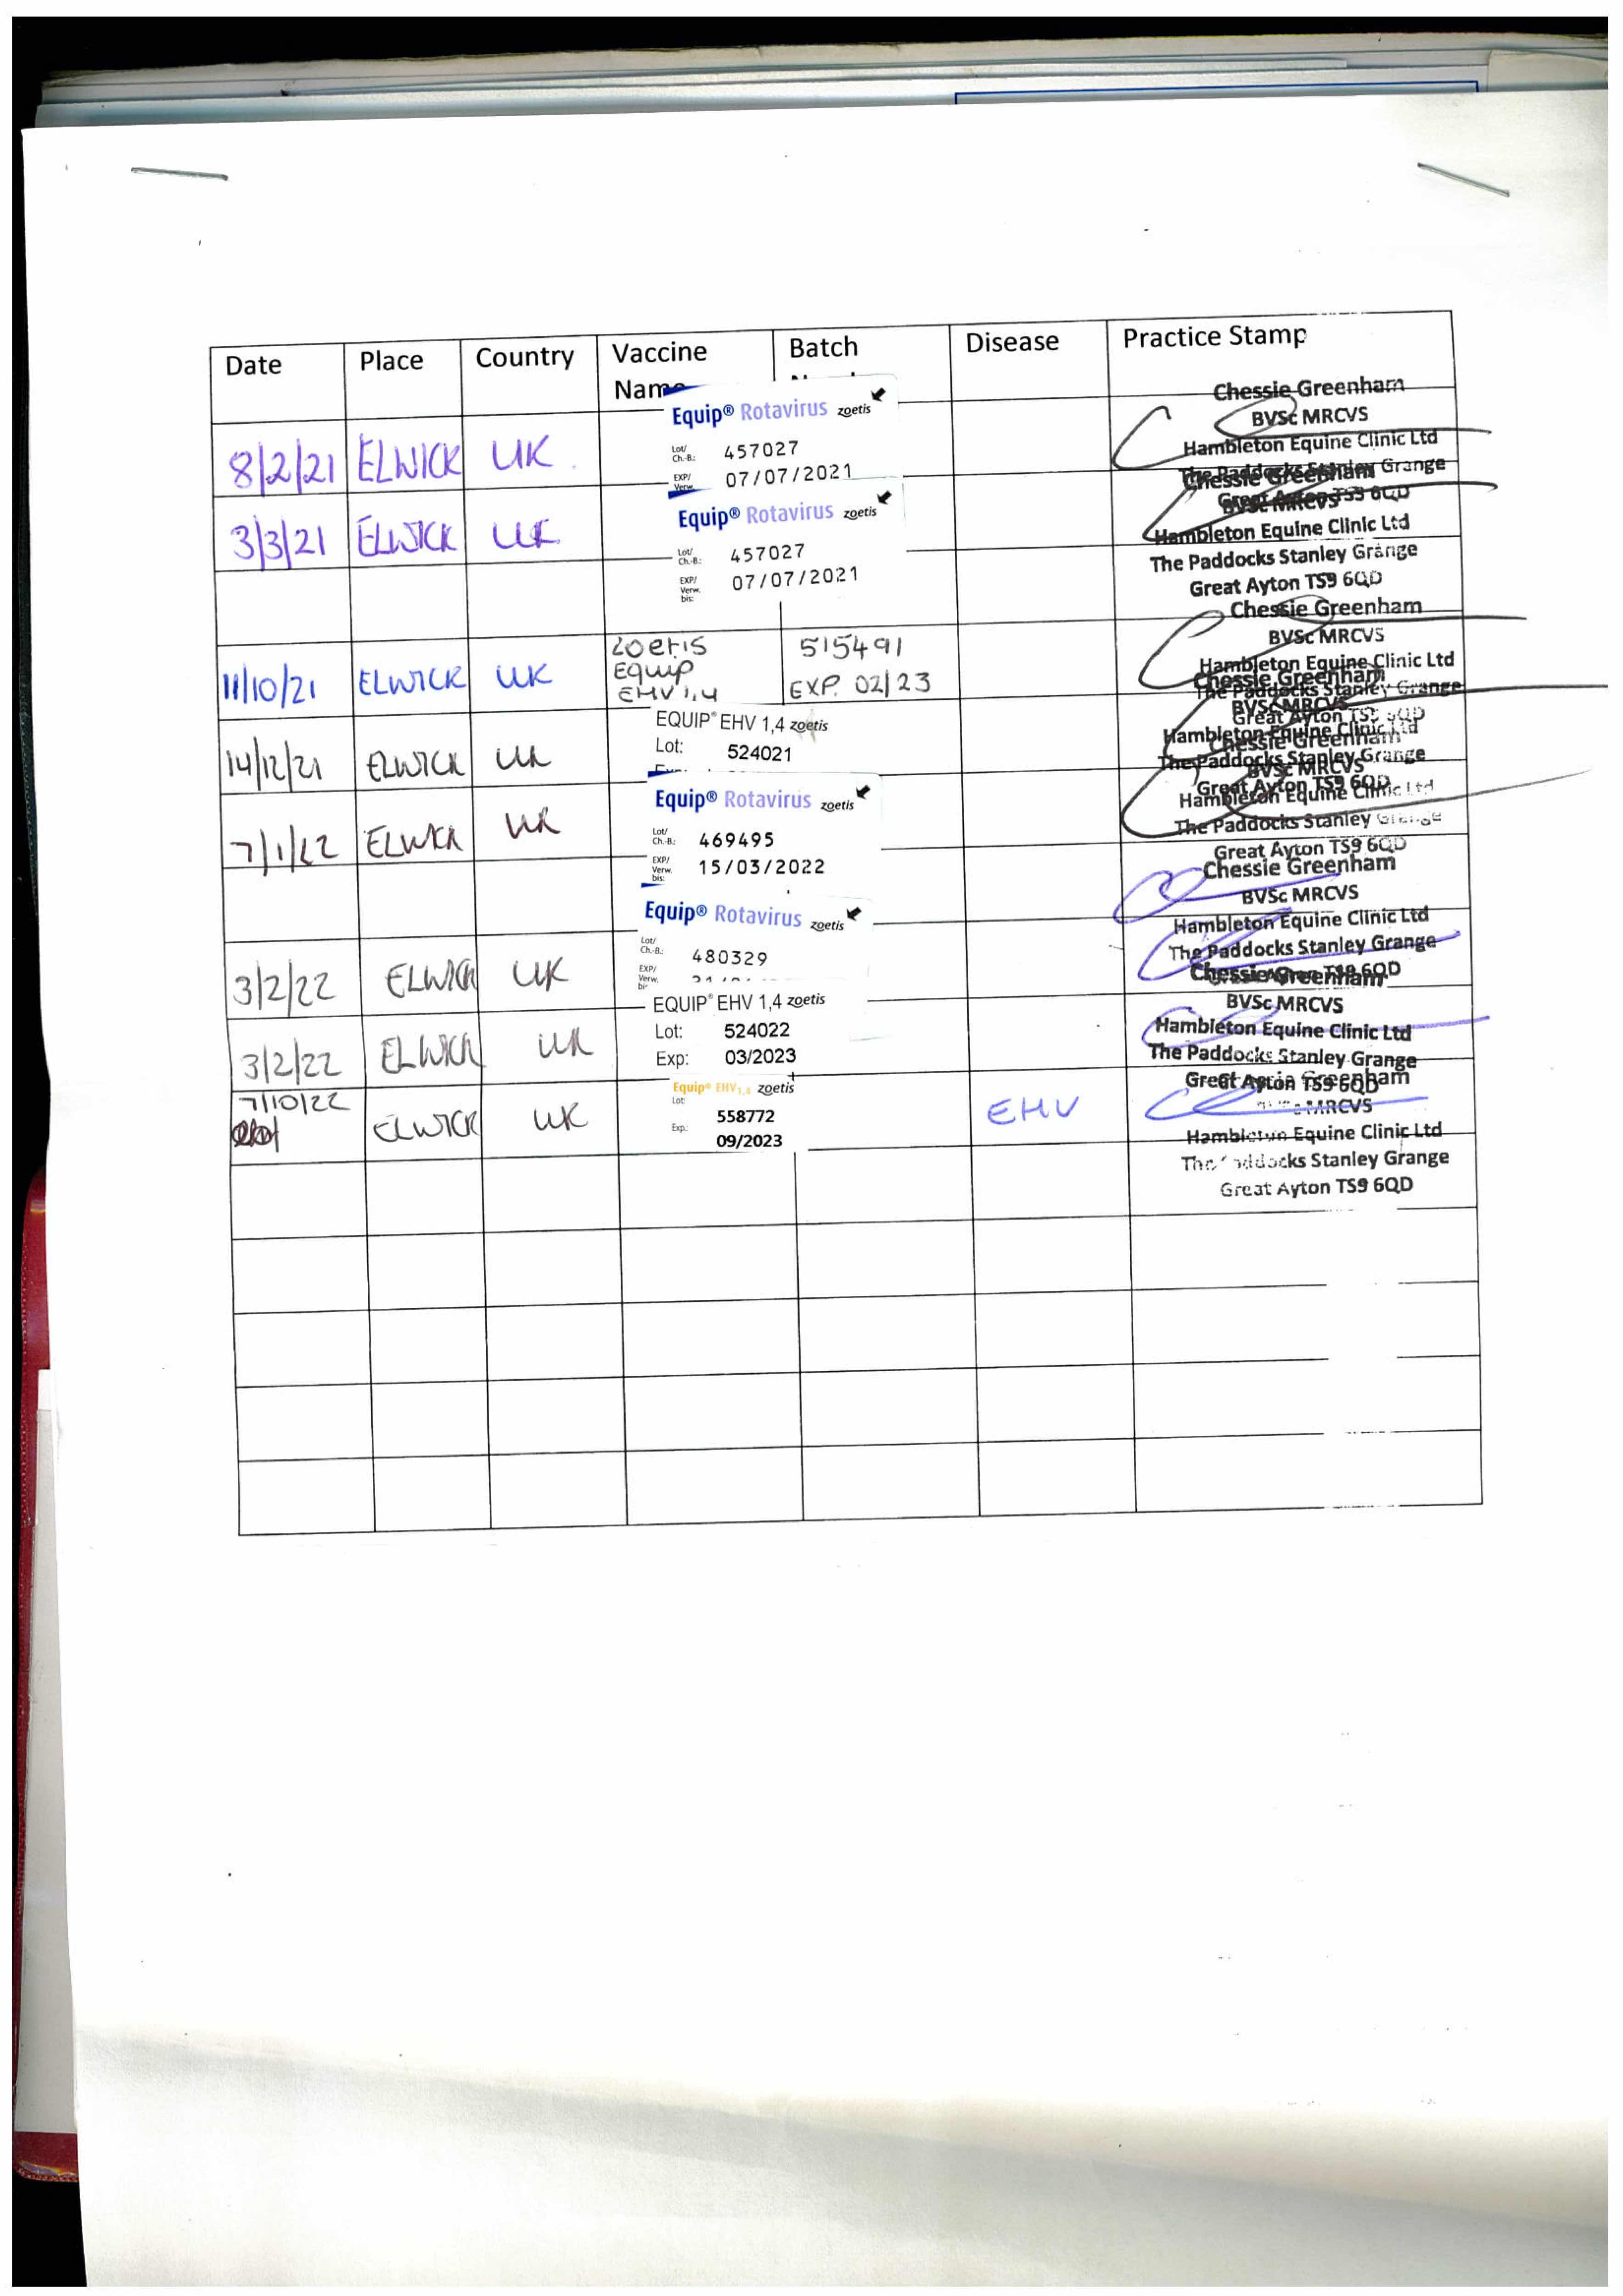 Date Place Country Vaccine Batch Disease Practice Stamp
Name
Equip® Rotavirus zoetis
Lot/ Ch.-B.: 457027
EXP/ Verw. 07/07/2021
8/2/21 ELWICK UK
Chessie Greenham
BVSc MRCVS
Hambleton Equine Clinic Ltd
The Paddocks Stanley Grange
Great Ayton TS9 6QD
Equip® Rotavirus zoetis
Lot/ Ch.-B.: 457027
EXP/ Verw. bis: 07/07/2021
3/3/21 ELWICK UK
Chessie Greenham
BVSc MRCVS
Hambleton Equine Clinic Ltd
The Paddocks Stanley Grange
Great Ayton TS9 6QD
11/10/21 ELWICK UK
Zoetis
Equip
EHV 1,4
515491
EXP. 02/23
Chessie Greenham
BVSc MRCVS
Hambleton Equine Clinic Ltd
The Paddocks Stanley Grange
Great Ayton
14/12/21 ELWICK UK
EQUIP® EHV 1,4 zoetis
Lot: 524021
Chessie Greenham
BVSc MRCVS
Hambleton Equine Clinic Ltd
The Paddocks Stanley Grange
Great Ayton TS9 6QD
7/1/22 ELWICK UK
Equip® Rotavirus zoetis
Lot/ Ch.-B.: 469495
EXP/ Verw. bis: 15/03/2022
Chessie Greenham
BVSc MRCVS
Hambleton Equine Clinic Ltd
The Paddocks Stanley Grange
Great Ayton TS9 6QD
3/2/22 ELWICK UK
Equip® Rotavirus zoetis
Lot/ Ch.-B.: 480329
EXP/ Verw.
Chessie Greenham
BVSc MRCVS
Hambleton Equine Clinic Ltd
The Paddocks Stanley Grange
6QD
3/2/22 ELWICK UK
EQUIP® EHV 1,4 zoetis
Lot: 524022
Exp: 03/2023
Chessie Greenham
BVSc MRCVS
Hambleton Equine Clinic Ltd
The Paddocks Stanley Grange
Great Ayton TS9 6QD
7/10/22 ELWICK UK
Equip® EHV1,4 zoetis
Lot: 558772
Exp.: 09/2023
EHV
Greenham
MRCVS
Hambleton Equine Clinic Ltd
The Paddocks Stanley Grange
Great Ayton TS9 6QD